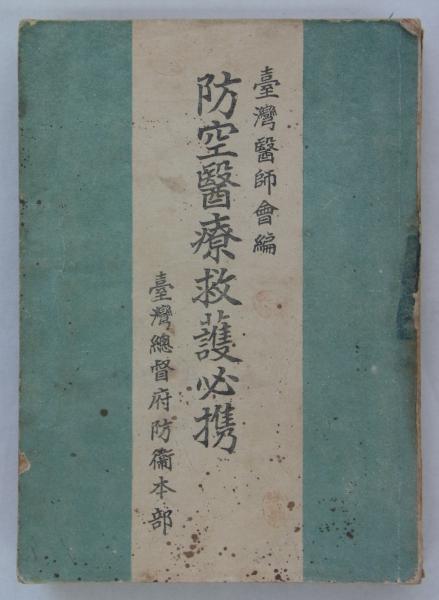 臺灣醫師會編
防空醫療救護必携
臺灣總督府防衞本部